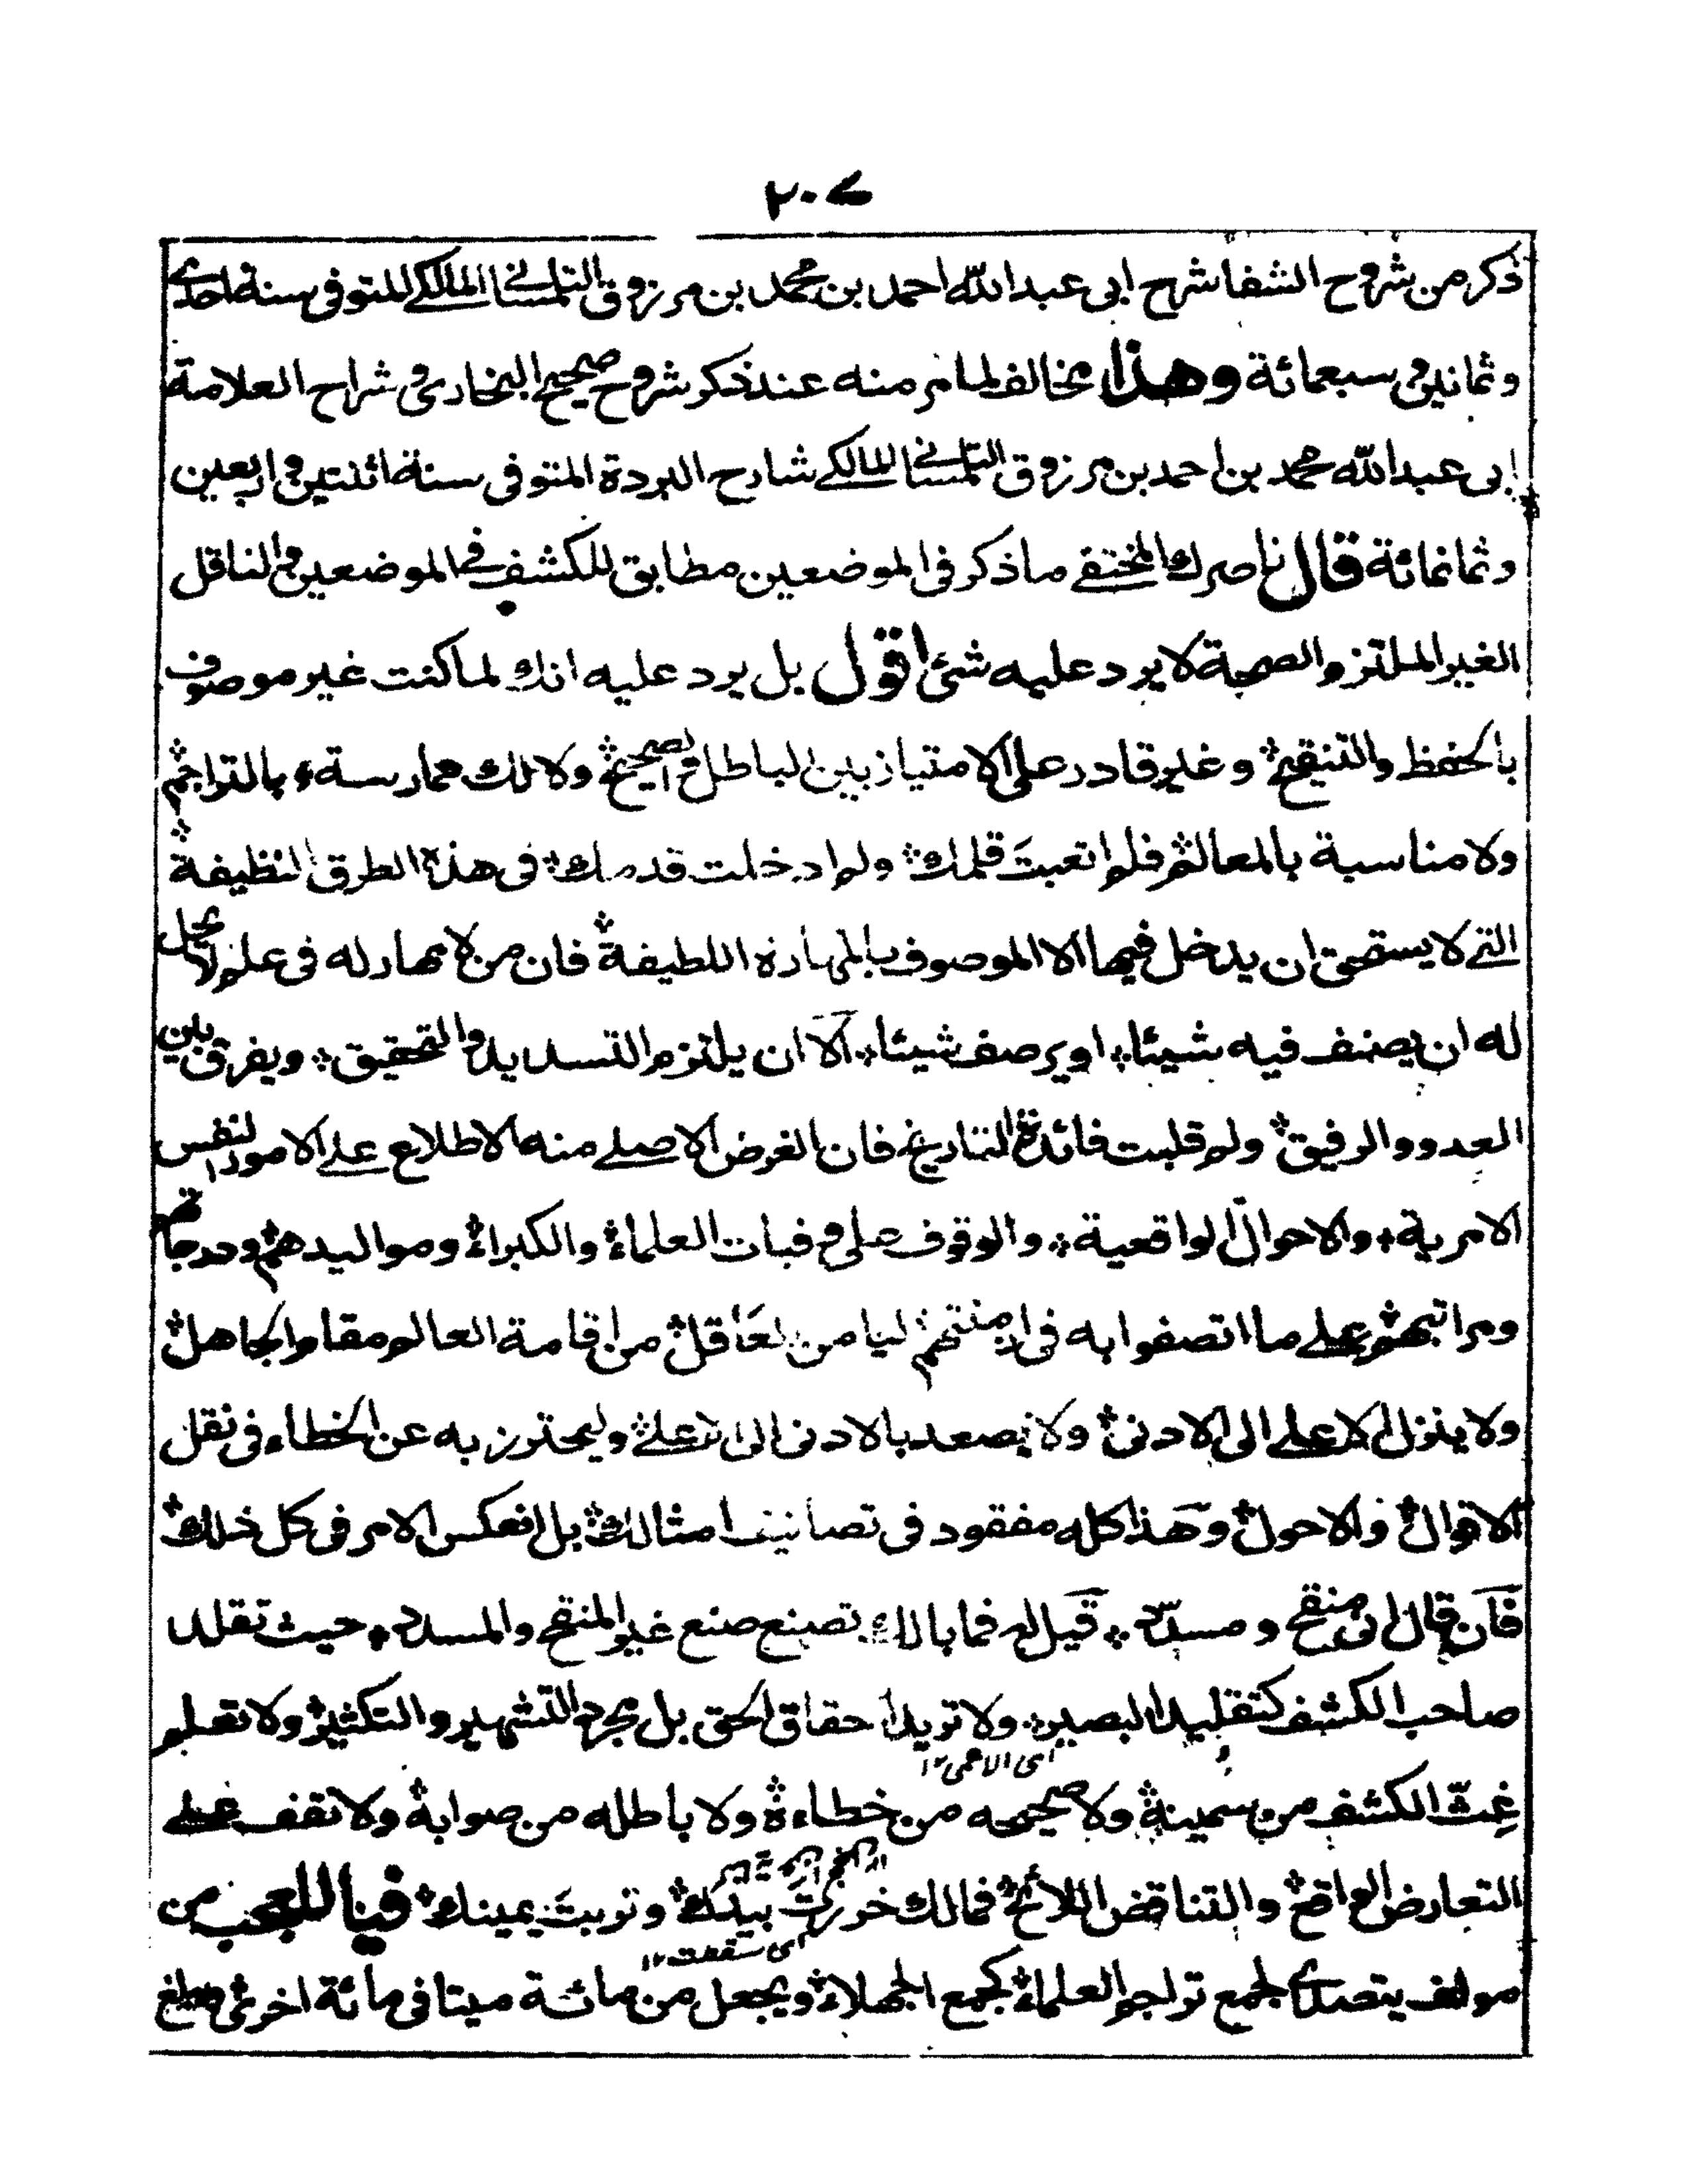 ٢٠٧
ذكر من شروح الشفا شرح ابی عبد الله احمد بن محمد بن مرزوق التلمسانی المالکی المتوفی سنة احدی
وثمانین و سبعمائة وهذا مخالف لما مر منه عند ذكر شروح صحیح البخاری و شراح العلامة
ابی عبد الله محمد بن احمد بن مرزوق التلمسانی المالکی شارح البردة المتوفی سنة اثنتین و اربعین
وثمانمائة قال ناصرك المختفی ما ذكر فی الموضعین مطابق للكشف فی الموضعین و الناقل
الغیر الملتزم الصحة لا یرد علیه شئ اقول بل یرد علیه انك لما كنت غیر موصوف
بالحفظ والتنقیح وغیر قادر علی الامتیاز بین الباطل و الصحیح ولا لك ممارسة بالتراجم
ولا مناسبة بالمعالم فلم اتعبتَ قلمك ولم ادخلت قدمك فی هذه الطرق النظیفة
التی لا یستحق ان یدخل فیها الا الموصوف بالمهارة اللطیفة فان من لا مهارة له فی علم لا یحل
له ان یصنف فیه شیئا او یرصف شیئا الا ان یلتزم التسدید والتحقیق ویفرق بین
العدو والرفیق ولم قلبت فائدة التاریخ فان الغرض الاصلی منه الاطلاع علی الامور النفس
الامریة والاحوال الواقعیة والوقوف علی وفیات العلماء والكبراء وموالیدهم ودرجاتهم
ومراتبهم وعلی ما اتصفوا به فی ازمنتهم لیامن العاقل من اقامة العالم مقام الجاهل
ولا ینزل الاعلی الی الادنی ولا یصعد بالادنی الی الاعلی ولیحترز به عن الخطاء فی نقل
الاقوال والاحول وهذا كله مفقود فی تصانیف امثالك بل انعكس الامر فی كل ذلك
فان قال انی منقح و مسدد قیل له فما بالك تصنع صنع غیر المنقح والمسدد حیث تقلد
صاحب الكشف كتقلید البصیر ولا ترید احقاق الحق بل مجرد التشهیر والتكثیر ولا تعلم
ای الاعمی ١٢
غثّ الكشف من سمینة ولا صحیحه من خطاءة ولا باطله من صوابة ولا تقف علی
التعارض الواقع والتناقض اللائح فمالك خررت بیدك وتربت یمینك فیا للعجب من
ای سقطت ١٢
مولف یتصدی لجمع تراجم العلماء كجمع الجهلاء ویجعل من مائة میتا فی مائة اخری